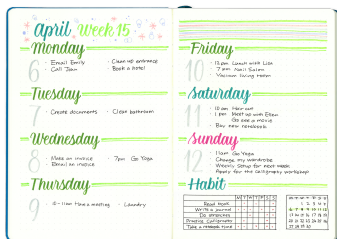 April Week 15
Monday
6
· Email Emily
· Clean up entrance
· Call John
· Book a hotel
Tuesday
7
· Create documents
· Clean bathroom
Wednesday
8
· Make an invoice
· 7pm Go Yoga
· Email an invoice
Thursday
9
· 10-11am Have a meeting
· Laundry
Friday
10
· 12pm Lunch with Lisa
· 7pm Nail Salon
· Vacuum living room
Saturday
11
· 10am Hair cut
· 1pm Meet up with Ellen
Go see a movie
· Buy new notebook
Sunday
12
· 11am Go Yoga
· Change my wardrobe
· Weekly Setup for next week
· Apply for the Calligraphy workshop
Habit
M T W T F S S
Read book
Write a journal
Do exercises
Practice Calligraphy
Take a relaxed time